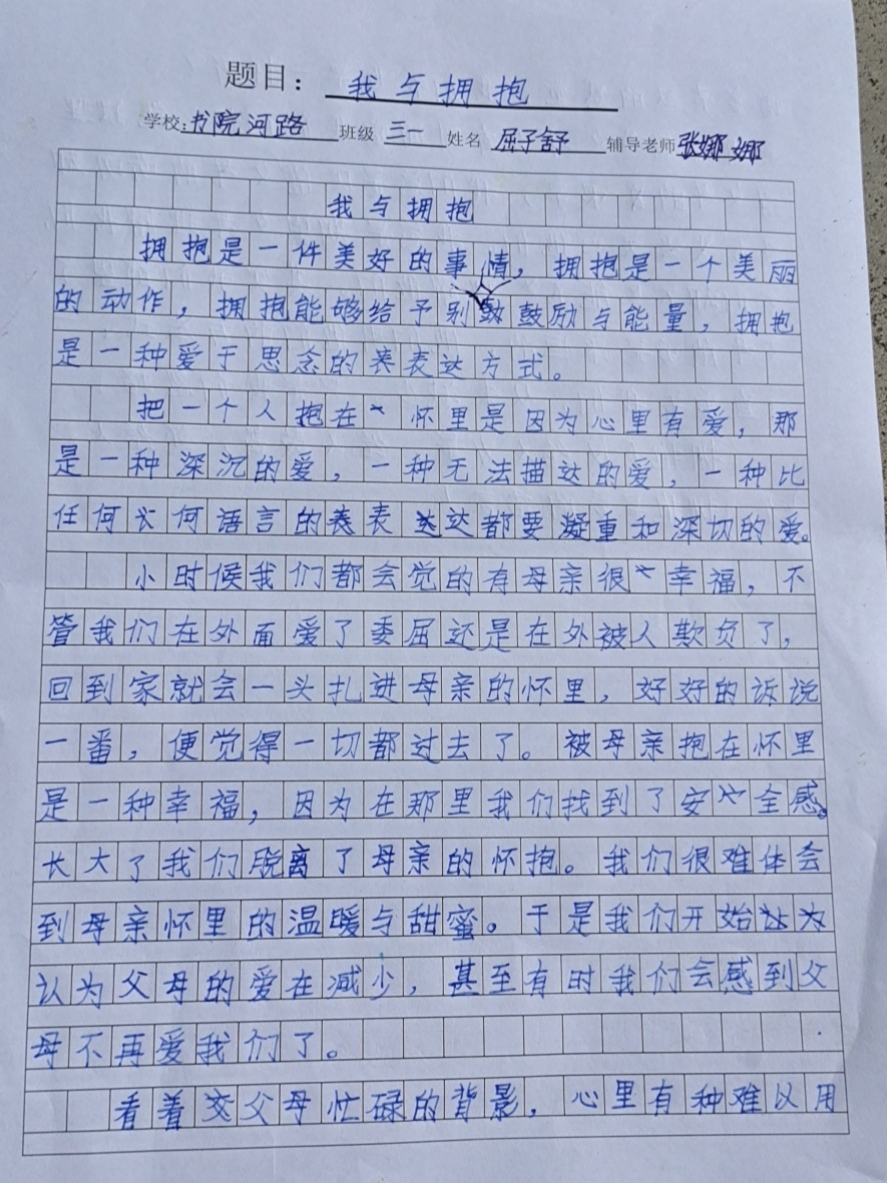 题目：我与拥抱
学校：书院河路 班级 三一 姓名 屈子舒 辅导老师 张娜娜
我与拥抱
拥抱是一件美好的事情，拥抱是一个美丽
的动作，拥抱能够给予别人鼓励与能量，拥抱
是一种爱于思念的表达方式。
把一个人抱在怀里是因为心里有爱，那
是一种深沉的爱，一种无法描达的爱，一种比
任何语言的表达都要凝重和深切的爱。
小时候我们都会觉的有母亲很幸福，不
管我们在外面爱了委屈还是在外被人欺负了，
回到家就会一头扎进母亲的怀里，好好的诉说
一番，便觉得一切都过去了。被母亲抱在怀里
是一种幸福，因为在那里我们找到了安全感。
长大了我们脱离了母亲的怀抱。我们很难体会
到母亲怀里的温暖与甜蜜。于是我们开始
认为父母的爱在减少，甚至有时我们会感到父
母不再爱我们了。
看着父母忙碌的背影，心里有种难以用